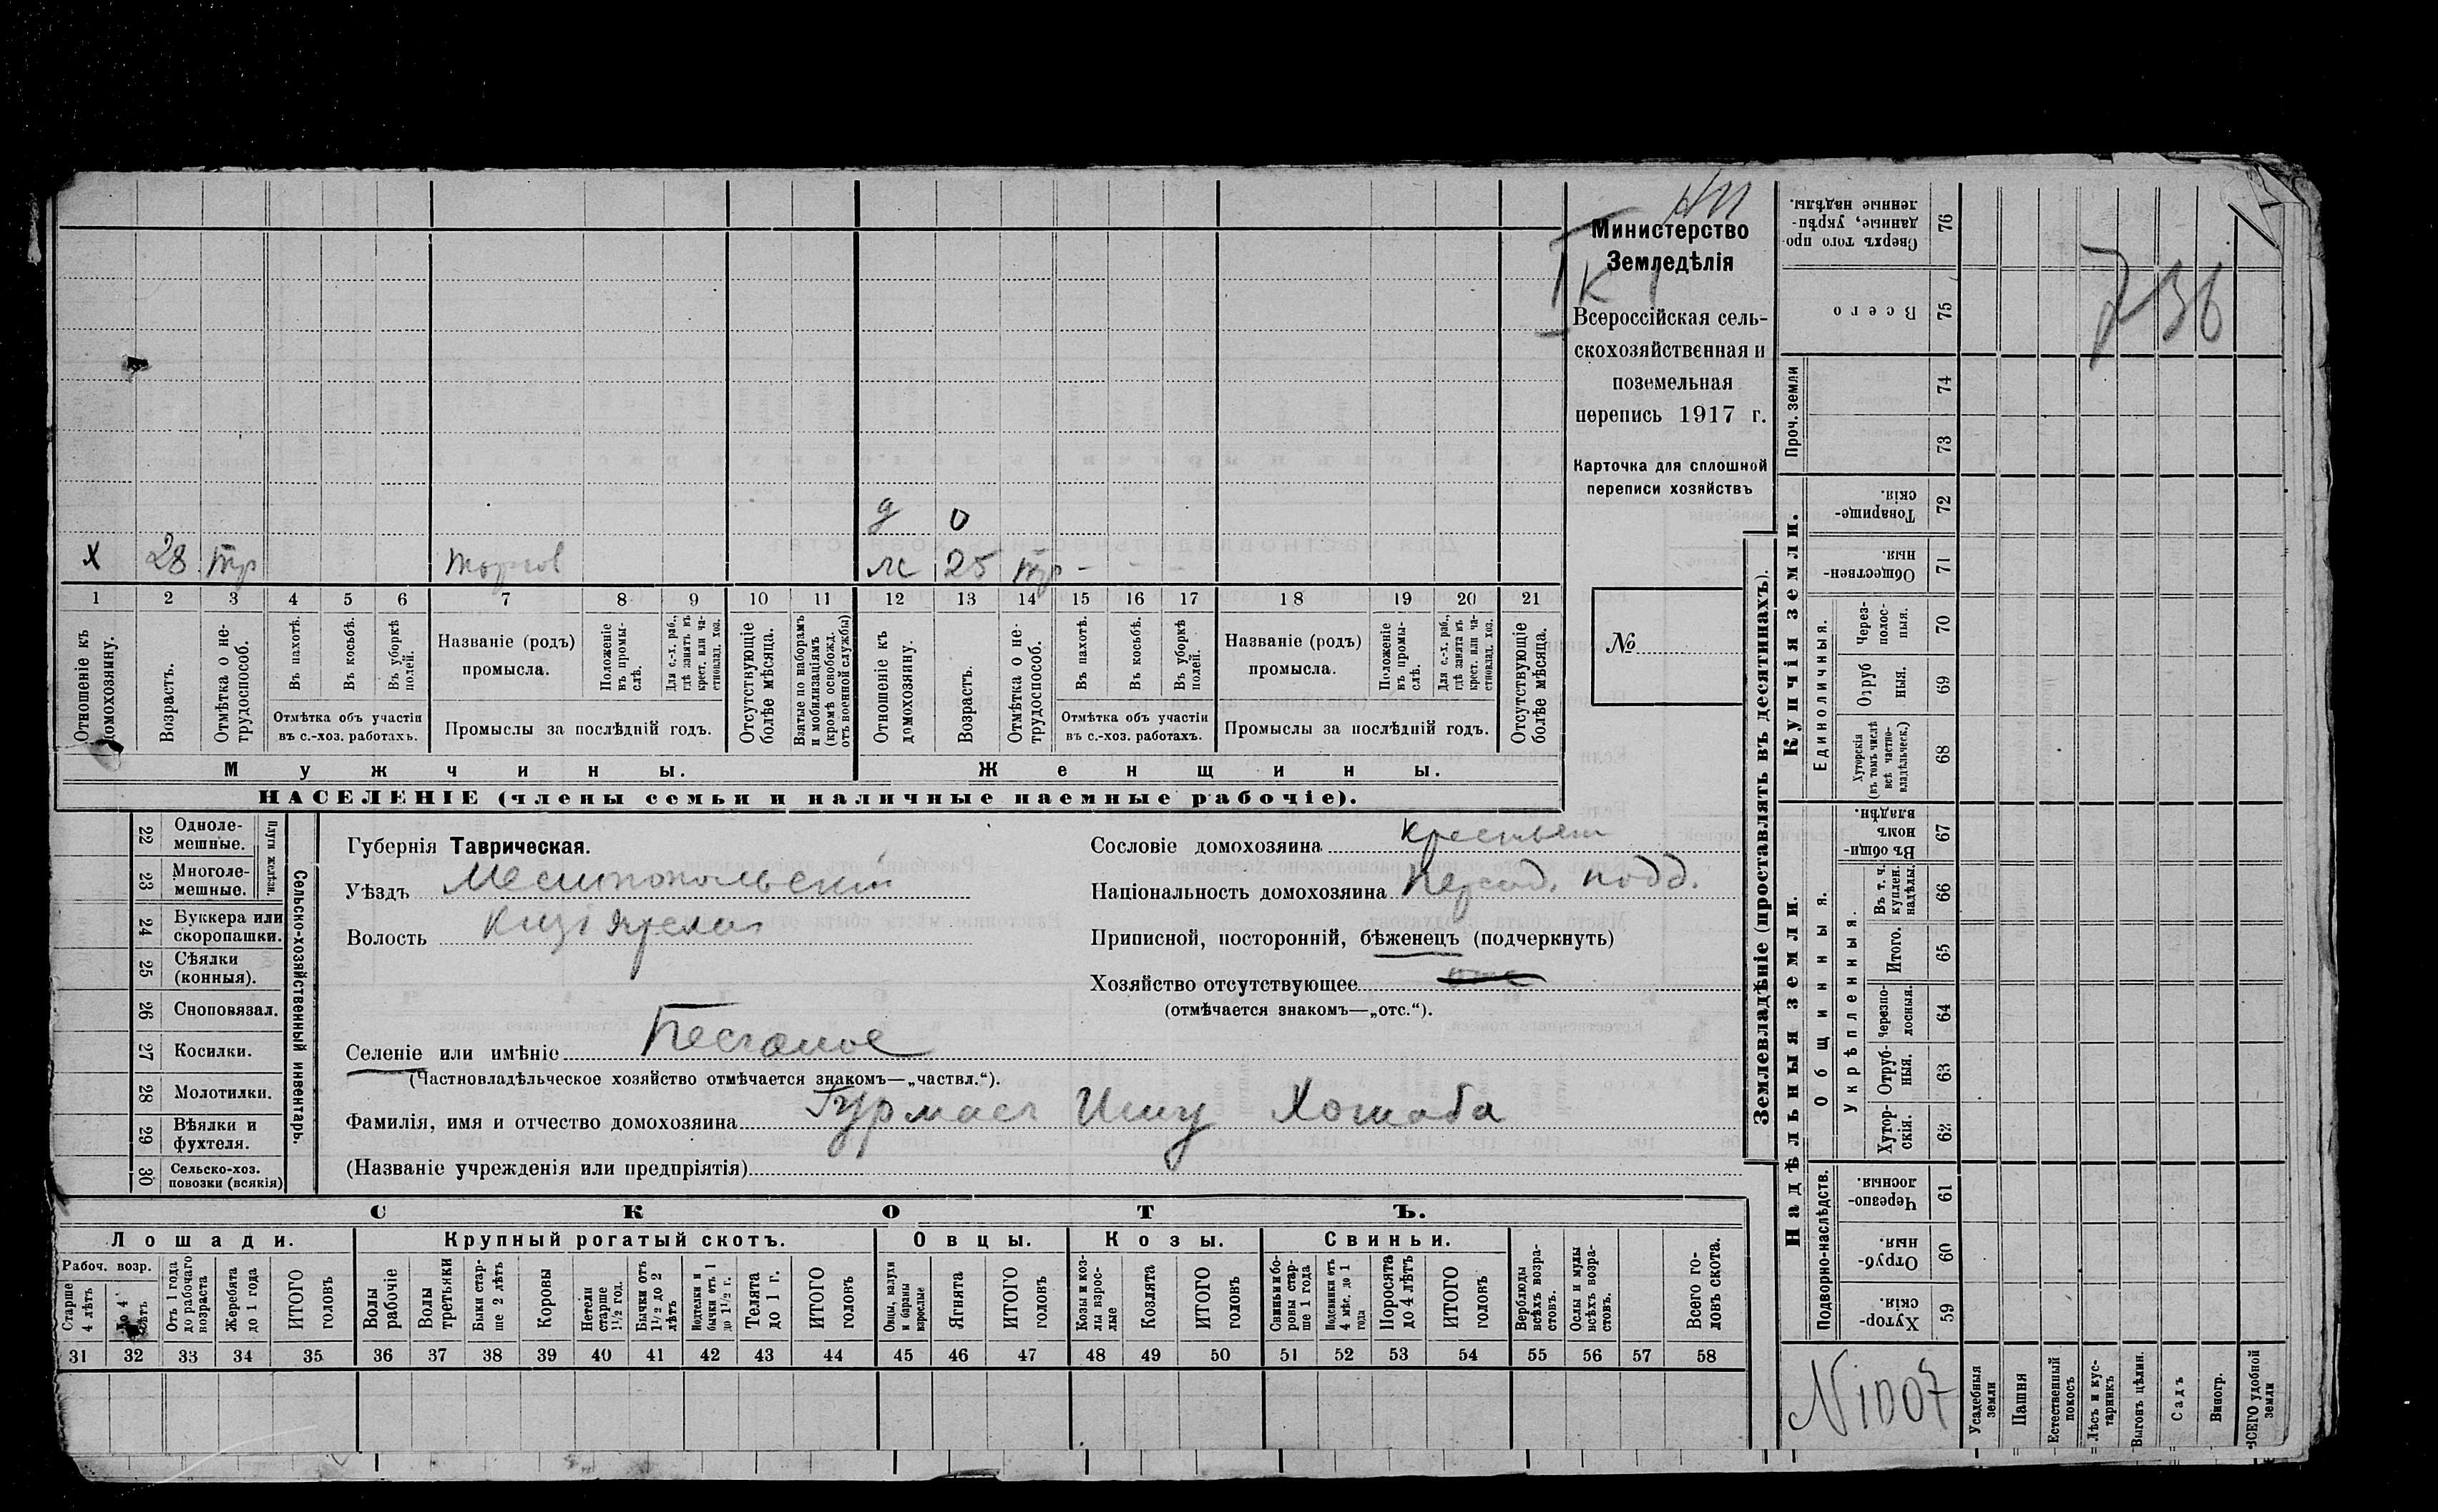 Министерство
Земледѣлія
Всероссійская сель-
скохозяйственная и
поземельная
перепись 1917 г.
Карточка для сплошной
переписи хозяйствъ
№
736
д 0
х 28 тр торгов ж 25 тр - - -
1 2 3 4 5 6 7 8 9 10 11 12 13 14 15 16 17 18 19 20 21
Отношеніе къ домохозяину.
Возрастъ.
Отмѣтка о не-трудоспособ.
Въ пахотѣ.
Въ косьбѣ.
Въ уборкѣ полей.
Отмѣтка объ участіи
въ с.-хоз. работахъ.
Названіе (родъ)
промысла.
Положеніе въ промы-слѣ.
Для с.-х. раб., гдѣ занятъ въ крест. или ча-стновлад. хоз.
Промыслы за послѣдній годъ.
Отсутствующіе болѣе мѣсяца.
Взятые по наборамъ и мобилизаціямъ (кромѣ освобожд. отъ военной службы)
Отношеніе къ домохозяину.
Возрастъ.
Отмѣтка о не-трудоспособ.
Въ пахотѣ.
Въ косьбѣ.
Въ уборкѣ полей.
Отмѣтка объ участіи
въ с.-хоз. работахъ.
Названіе (родъ)
промысла.
Положеніе въ промы-слѣ.
Для с.-х. раб., гдѣ занята въ крест. или ча-стновлад. хоз.
Промыслы за послѣдній годъ.
Отсутствующіе болѣе мѣсяца.
Мужчины. Женщины.
НАСЕЛЕНІЕ (члены семьи и наличные наемные рабочіе).
Сельско-хозяйственный инвентарь.
Плуги желѣзн.
22 Одноле-мешные.
23 Многоле-мешные.
24 Буккера или скоропашки.
25 Сѣялки (конныя).
26 Сноповязал.
27 Косилки.
28 Молотилки.
29 Вѣялки и фухтеля.
30 Сельско-хоз. повозки (всякія)
Губернія Таврическая.
Уѣздъ Мелитопольскій
Волость
Селеніе или имѣніе Песчаное
(Частновладѣльческое хозяйство отмѣчается знакомъ—„частвл.“).
Фамилія, имя и отчество домохозяина Гурмась Ишу Хошаба
(Названіе учрежденія или предпріятія)
Сословіе домохозяина крестьян
Національность домохозяина Персид. подд.
Приписной, посторонній, бѣженецъ (подчеркнуть)
Хозяйство отсутствующее
(отмѣчается знакомъ—„отс.“).
СКОТЪ.
Лошади. Крупный рогатый скотъ. Овцы. Козы. Свиньи.
Рабоч. возр.
Старше 4 лѣтъ
До 4 лѣтъ
Отъ 1 года до рабочаго возраста
Жеребята до 1 года
ИТОГО головъ
Волы рабочіе
Волы третьяки
Быки стар-ше 2 лѣтъ
Коровы
Нетели старше 1½ год.
Бычки отъ 1½ до 2 лѣтъ
Подтелки и бычки отъ 1 до 1½ г.
Телята до 1 г.
ИТОГО головъ
Овцы, валухи и бараны взрослые
Ягнята
ИТОГО головъ
Козы и коз-лы взрос-лые
Козлята
ИТОГО головъ
Свиньи и бо-ровы стар-ше 1 года
Подсвинки отъ 4 мѣс. до 1 года
Поросята до 4 лѣтъ
ИТОГО головъ
Верблюды всѣхъ возра-стовъ.
Ослы и мулы всѣхъ возра-стовъ.
Всего го-ловъ скота.
31 32 33 34 35 36 37 38 39 40 41 42 43 44 45 46 47 48 49 50 51 52 53 54 55 56 57 58
Землевладѣніе (проставлять въ десятинахъ).
Купчія земли.
Надѣльныя земли.
Сверхъ того про-данные, укрѣп-ленные надѣлы. 76
Всего 75
Проч. земли
74
73
Товарище-скія. 72
Обществен-ныя. 71
Единоличныя.
Через-полос-ныя. 70
Отруб-ныя. 69
Хуторскія (въ томъ числѣ всѣ частно-владѣльческ.) 68
Общинныя.
Въ общин-номъ владѣн. 67
Въ т. ч. куплен. надѣлы. 66
Укрѣпленныя.
Итого. 65
Черезпо-лосныя. 64
Отруб-ныя. 63
Хутор-скія. 62
Подворно-наслѣдств.
Черезпо-лосныя. 61
Отруб-ныя. 60
Хутор-скія. 59
N 1007
Усадебныя земли
Пашня
Естественный покосъ
Лѣсъ и кус-тарникъ
Выгонъ цѣлин.
Садъ
Виногр.
ВСЕГО удобной земли